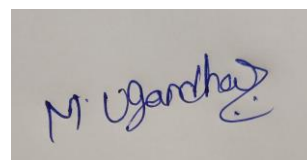 M. Ugandhar